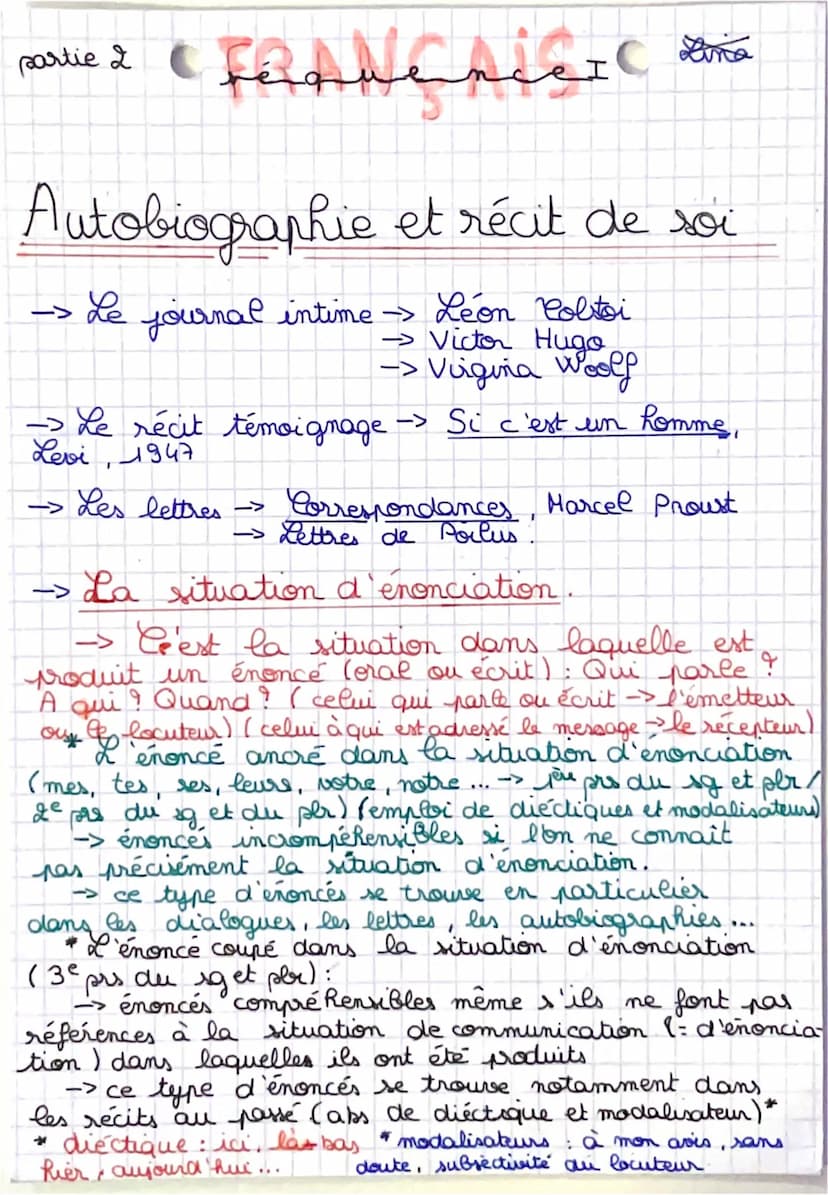 partie 2
FRANÇAIS
séquence I
Lina
Autobiographie et récit de soi
-> Le journal intime -> Léon Tolstoi
-> Victor Hugo
-> Virginia Woolf
-> Le récit témoignage -> Si c'est un homme,
Levi, 1947
-> Les lettres -> Correspondances, Marcel Proust
-> Lettres de Poilus.
-> La situation d'énonciation.
-> C'est la situation dans laquelle est
produit un énoncé (oral ou écrit) : Qui parle ?
A qui ? Quand ? (celui qui parle ou écrit -> l'émetteur
ou le locuteur) (celui à qui est adressé le message -> le récepteur)
* L'énoncé ancré dans la situation d'énonciation
(mes, tes, ses, leurs, votre, notre ... -> 1ère prs du sg et plr /
2e prs du sg et du plr) (emploi de diéctiques et modalisateurs)
-> énoncés incrompéhensibles si l'on ne connait
pas précisément la situation d'énonciation.
-> ce type d'énoncés se trouve en particulier
dans les dialogues, les lettres, les autobiographies ...
* L'énoncé coupé dans la situation d'énonciation
(3e prs du sg et plr) :
-> énoncés compréhensibles même s'ils ne font pas
références à la situation de communication (= d'énoncia-
tion) dans laquelles ils ont été produits
-> ce type d'énoncés se trouve notamment dans
les récits au passé (abs de diéctique et modalisateur)*
* diéctique : ici, là-bas
hier, aujourd'hui ...
* modalisateurs : à mon avis, sans
doute, subjectivité du locuteur